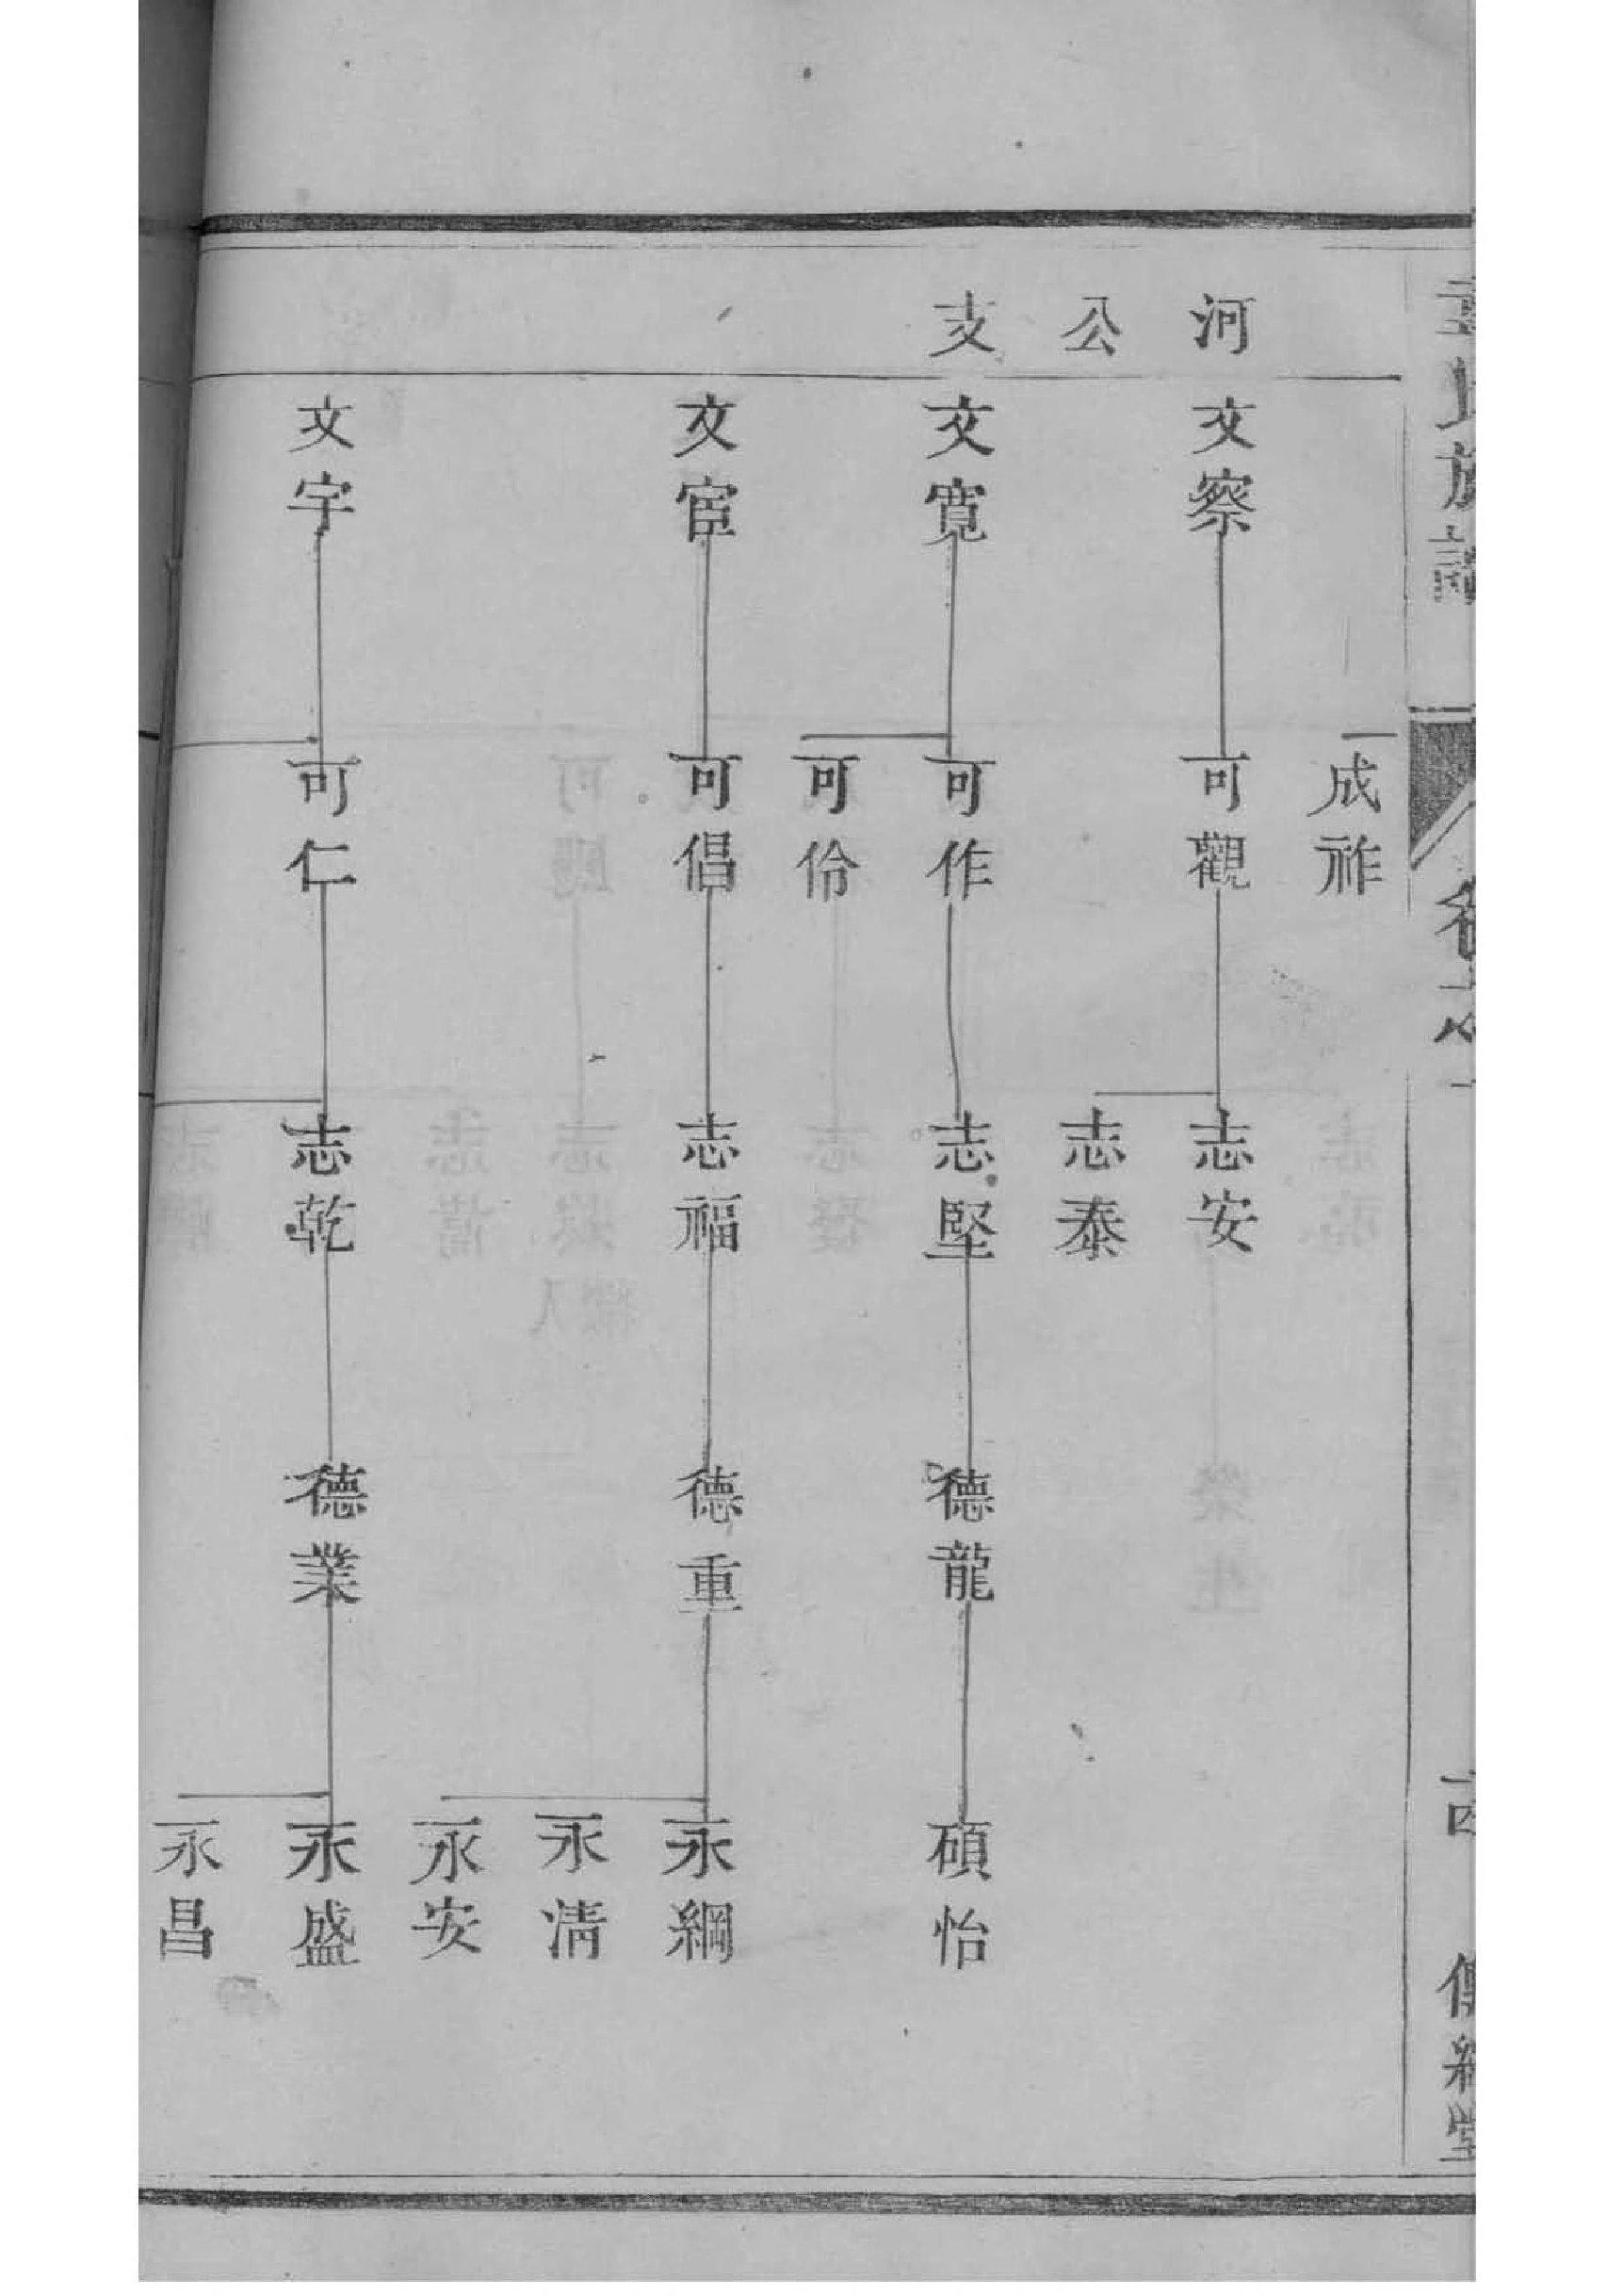 族譜
傳經堂
河公支
成祚
文察
可觀
志安
志泰
文寬
可作
可伶
志堅
德龍
碩怡
文宦
可倡
志福
德重
永綱
永清
永安
文宇
可仁
志乾
德業
永盛
永昌